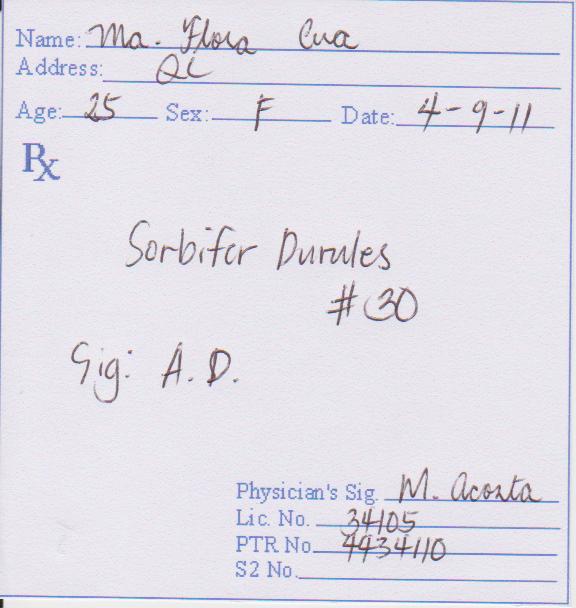 Name: Ma. Flora Cua
Address: QC
Age: 25 Sex: F Date: 4-9-11
Rx
Sorbifer Durules
#30
Sig: A.D.
Physician's Sig. M. Acosta
Lic. No. 34105
PTR No. 4434110
S2 No.